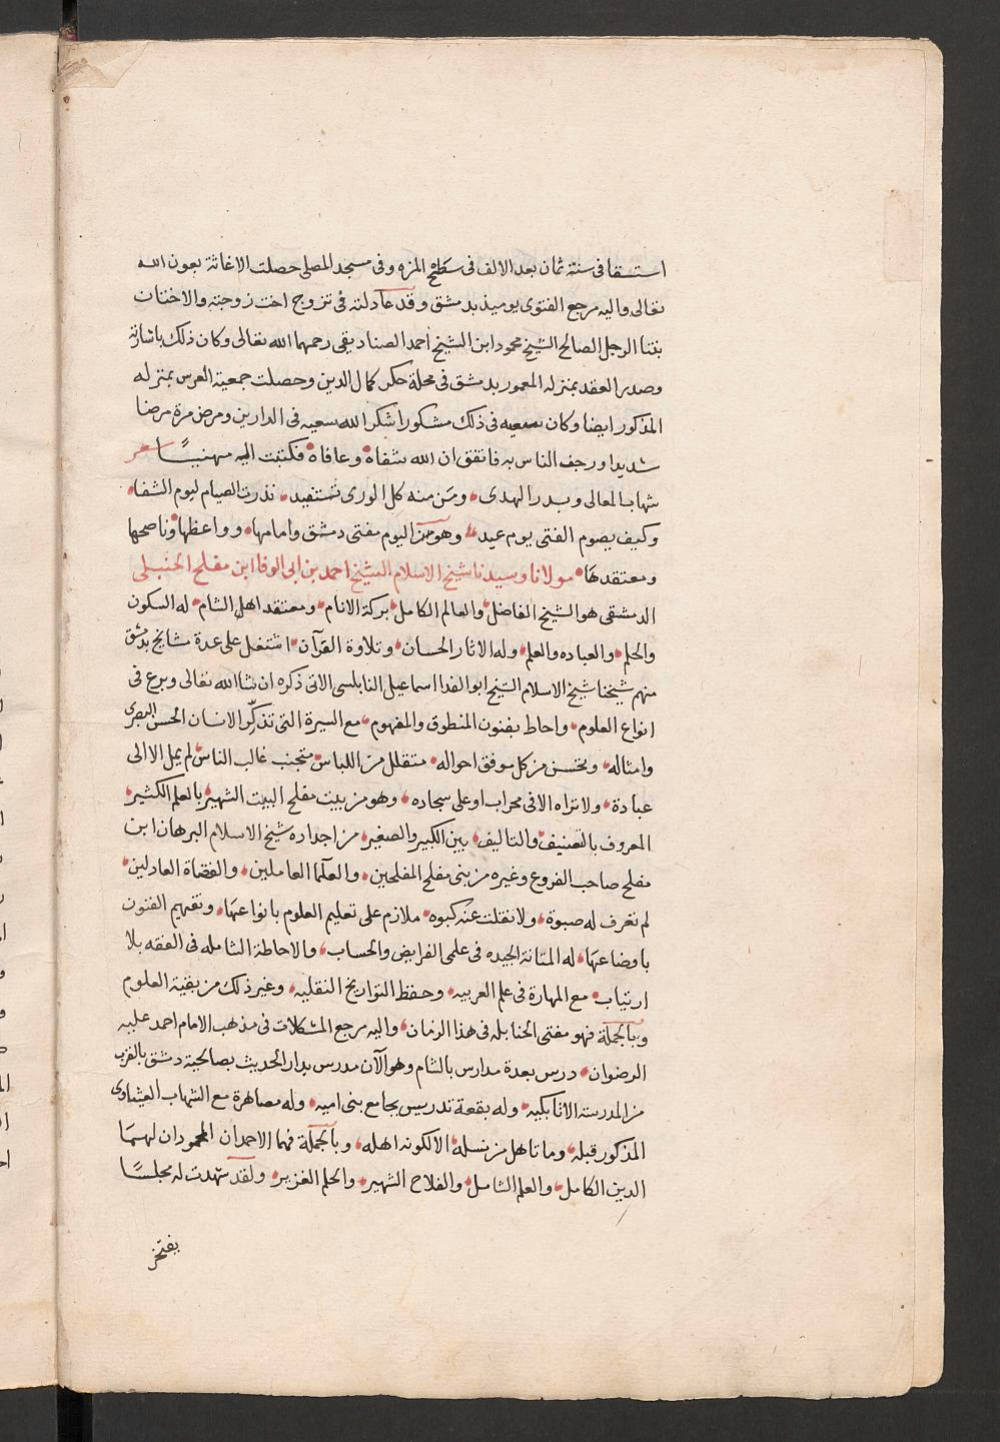 استسقا فى سنة ثمان بعد الالف فى سطح المزه وفى مسجد المصلى حصلت الاغاثة بعون الله
تعالى واليه مرجع الفتوى يوميذ بدمشق وقد عادلته فى تزوج اخت زوجته والاختان
بنتا الرجل الصالح الشيخ محمود ابن الشيخ احمد الصناديقى رحمهما الله تعالى وكان ذلك باشارته
وصدر العقد بمنزله المعمور بدمشق فى محلة حكر كمال الدين وحصلت جمعية العرس بمنزله
المذكور ايضا وكان سعيه فى ذلك مشكورا شكر الله سعيه فى الدارين ومرض مرة مرضا
شديدا ورجف الناس به فاتفق ان الله شفاه وعافاه فكتبت اليه مهنيًا شعر
شهاب المعالى وبدر الهدى ومن منه كل الورى تستفيد نذرت الصيام ليوم الشفا
وكيف يصوم الفتى يوم عيد وهو اليوم مفتى دمشق وامامها وواعظها وناصحها
ومعتقدها مولانا وسيدنا شيخ الاسلام الشيخ احمد بن ابى الوفا ابن مفلح الحنبلى
الدمشقى هو الشيخ الفاضل والعالم الكامل بركة الانام ومعتقد اهل الشام له السكون
والحلم والعباده والعلم وله الاثار الحسان وتلاوة القرآن اشتغل على عدة مشايخ بدمشق
منهم شيخنا شيخ الاسلام الشيخ ابو الفدا اسماعيل النابلسى الاتى ذكره ان شا الله تعالى وبرع فى
انواع العلوم واحاط بفنون المنطوق والمفهوم مع السيرة التى تذكّر الانسان الحسن البصرى
وامثاله وتحسن من كل موفق احواله متقلل من اللباس متجنب غالب الناس لم يمل الا الى
عبادة ولا تراه الا فى محراب او على سجاده وهو من بيت مفلح البيت الشهير بالعلم الكثير
المعروف بالتصنيف والتاليف بين الكبير والصغير من اجداده شيخ الاسلام البرهان ابن
مفلح صاحب الفروع وغيره من بنى مفلح المفلحين والعلما العاملين والقضاة العادلين
لم تعرف له صبوة ولا نقلت عنه كبوه ملازم على تعليم العلوم بانواعها وتفهيم الفنون
باوضاعها له المتانة الجيده فى علمى الفرايض والحساب والاحاطة الشامله فى الفقه بلا
ارتياب مع المهارة فى علم العربيه وحفظ التواريخ النقليه وغير ذلك من بقية العلوم
وبالجملة فهو مفتى الحنابله فى هذا الزمان واليه مرجع المشكلات فى مذهب الامام احمد عليه
الرضوان درس بعدة مدارس بالشام وهو الآن مدرس بدار الحديث بصالحية دمشق بالقرب
من المدرسة الاتابكيه وله بقعة تدريس بجامع بنى اميه وله مصاهرة مع الشهاب العيثاوى
المذكور قبله وما تاهل من نسله الا لكونه اهله وبالجملة فهما الاحمدان المحمودان لهما
الدين الكامل والعلم الشامل والفلاح الشهير والحلم الغزير ولقد شهدت له مجلسًا
يفتخر